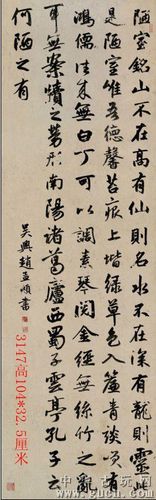 陋室銘山不在高有仙則名水不在深有龍則靈
是陋室唯吾德馨苔痕上堦綠草色入簾青談咲有
鴻儒往来無白丁可以調素琴閱金經無絲竹之亂
耳無案牘之勞形南陽諸葛廬西蜀子雲亭孔子云
何陋之有
吴興趙孟頫書
3147高104*32.5厘米
www.gucn.com